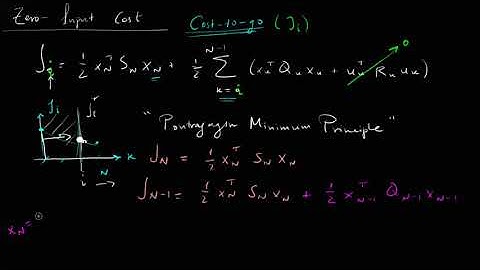 Zero-Input Cost Cost-to-go (J_i)
J_i = 1/2 x_N^T S_N x_N + 1/2 Σ_{k=i}^{N-1} (x_k^T Q_k x_k + u_k^T R_k u_k) 0
J_i J_i^*
i N k
"Pontryagin Minimum Principle"
J_N = 1/2 x_N^T S_N x_N
J_{N-1} = 1/2 x_N^T S_N x_N + 1/2 x_{N-1}^T Q_{N-1} x_{N-1}
x_N =